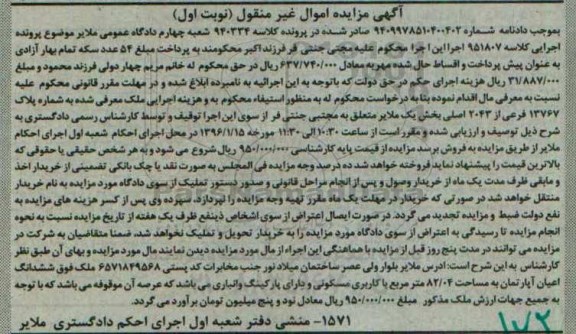 آگهی مزایده اموال غیر منقول (نوبت اول)
بموجب دادنامه شماره ۹۴۰۹۹۷۸۵۱۰۴۰۰۴۰۲ صادر شده در پرونده کلاسه ۹۴۰۳۳۴ شعبه چهارم دادگاه عمومی ملایر موضوع پرونده
اجرایی کلاسه ۹۵۱۸۰۷ اجرا این اجرا محکوم علیه مجتبی جنتی فر فرزند اکبر محکومند به پرداخت مبلغ ۵۴ عدد سکه تمام بهار آزادی
به عنوان پیش پرداخت و اقساط حال شده مهریه معادل ۶۳۷/۷۴۰/۰۰۰ ریال در حق محکوم له خانم مریم چهار دولی فرزند محمود و مبلغ
۳۱/۸۸۷/۰۰۰ ریال هزینه اجرای حکم در حق دولت که باتوجه به این اجرائیه به نامبرده ابلاغ شده و در مهلت مقرر قانونی محکوم علیه
نسبت به معرفی مال اقدام نموده بنا به درخواست محکوم له به منظور استیفاء محکوم به و هزینه اجرایی ملک معرفی شده به شماره پلاک
۱۳۷۶۷ فرعی از ۲۰۴۳ اصلی بخش یک ملایر متعلق به مجتبی جنتی فر از سوی این اجرا توقیف و توسط کارشناس رسمی دادگستری به
شرح ذیل توصیف و ارزیابی شده و مقرر است از ساعت ۱۰:۳۰ الی ۱۱:۳۰ مورخه ۱۳۹۶/۱/۱۵ در محل اجرای احکام شعبه اول اجرای احکام
ملایر از طریق مزایده به فروش برسد مزایده از قیمت پایه کارشناسی ۹۵۰/۰۰۰/۰۰۰ ریال شروع می شود و به هر شخص حقیقی یا حقوقی که
بالاترین قیمت را پیشنهاد نماید فروخته خواهد شد ده درصد وجه مزایده فی المجلس به صورت نقد یا چک بانکی تضمینی از خریدار اخذ
و مابقی ظرف مدت یک ماه از خریدار وصول و پس از انجام مراحل قانونی و صدور دستور تملیک از سوی دادگاه مورد مزایده به نام خریدار
منتقل خواهد شد در صورتی که خریدار در مهلت یک ماه مقرر بقیه وجه مزایده را نپردازد، سپرده وی پس از کسر هزینه های مزایده به
نفع دولت ضبط و مزایده تجدید می گردد. در صورت ایصال اعتراض از سوی اشخاص ذینفع ظرف یک هفته از تاریخ مزایده نسبت به نحوه
انجام مزایده تا رسیدگی به اعتراض از سوی دادگاه مورد مزایده را به خریدار تحویل و تملیک نخواهد شد، ضمنا متقاضیان به شرکت در
مزایده می توانند در مدت پنج روز قبل از مزایده با هماهنگی این اجراء از مال مورد مزایده دیدن نمایند مال مورد مزایده و بهای آن طبق نظر
کارشناس به این شرح است: ادرس ملایر بلوار ولی عصر ساختمان میلاد نور جنب مخابرات کد پستی ۶۵۷۱۸۴۹۵۶۸ ملک فوق ششدانگ
اعیان آپارتمان به مساحت ۸۲/۰۴ متر مربع با کاربری مسکونی و دارای پارکینگ و انباری می باشد که عرصه آن موقوفه می باشد که با توجه
به جمیع جهات ارزش ملک مذکور مبلغ ۹۵۰/۰۰۰/۰۰۰ ریال معادل نود و پنج میلیون تومان برآورد می گردد.
۱۵۷۱- منشی دفتر شعبه اول اجرای احکم دادگستری ملایر
۱۷۲